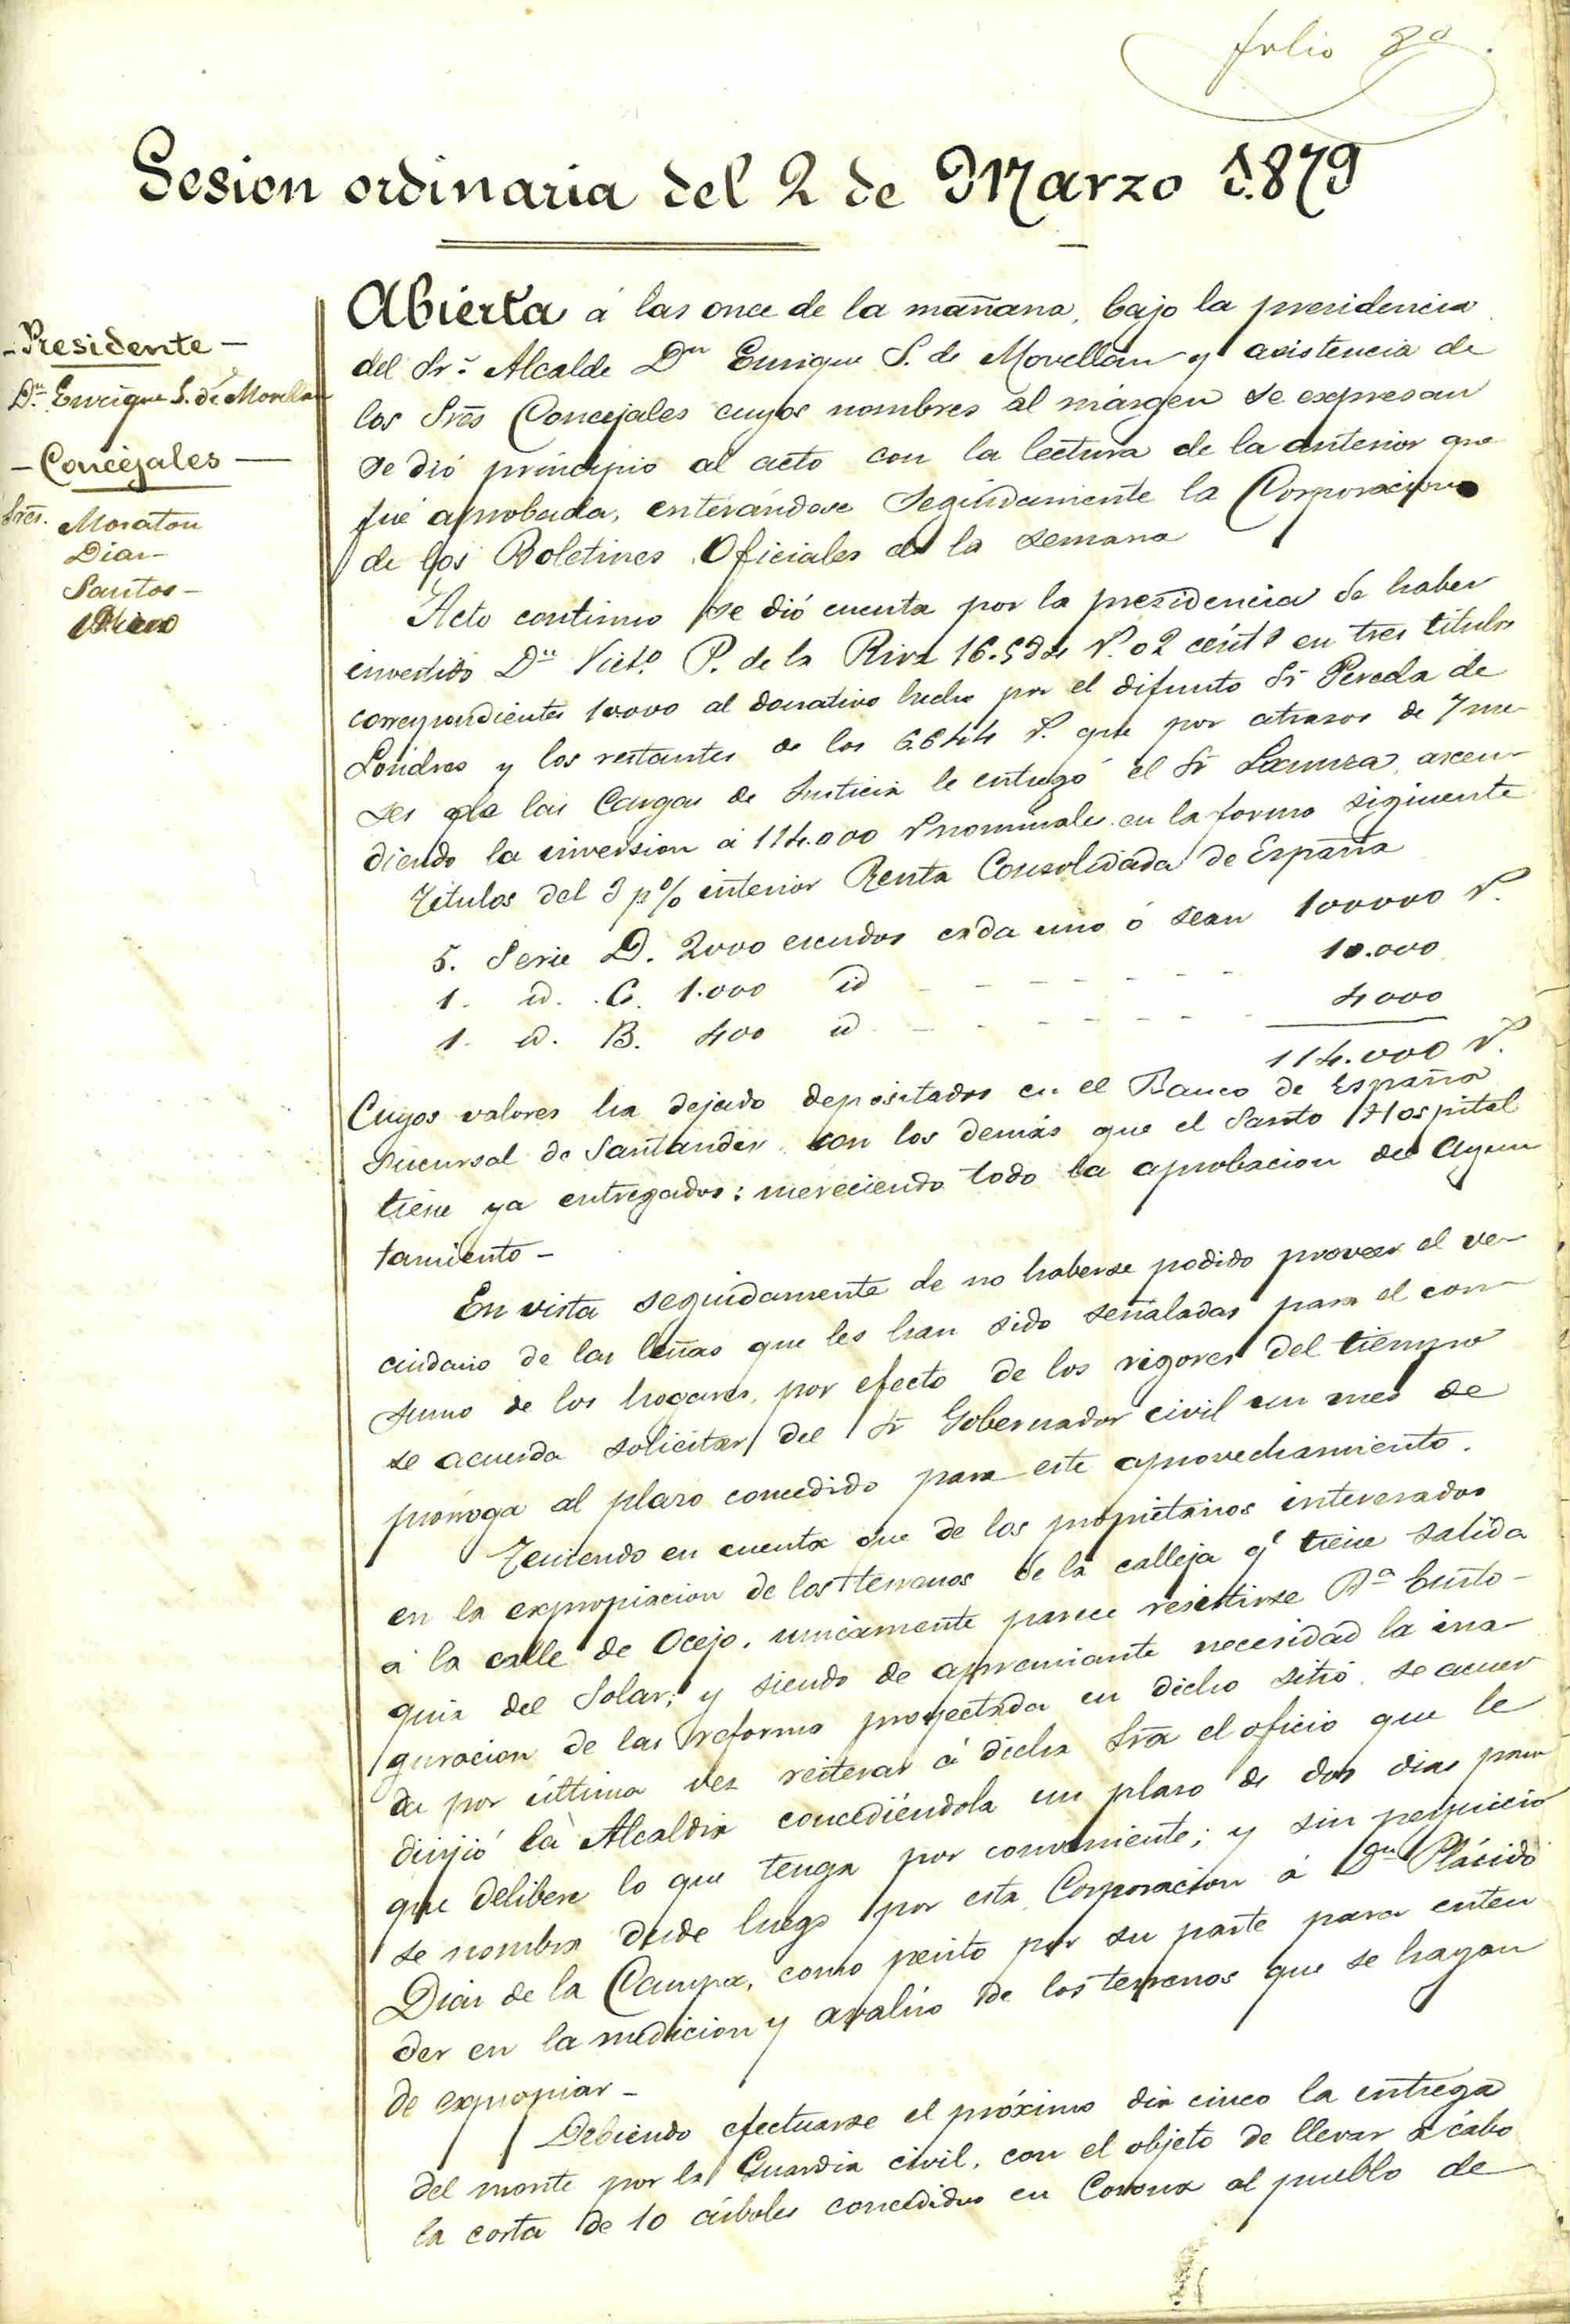 folio 8º
Sesion ordinaria del 2 de Marzo 1.879
- Presidente -
Dn. Enrique S. de Movellan
- Concejales -
Sres. Moraton
Diaz -
Santos -
Abierta á las once de la mañana, bajo la presidencia
del Sr. Alcalde Dn Enrique S. de Movellán y asistencia de
los Sres Concejales cuyos nombres al márgen se expresan
se dió principio al acto con la lectura de la anterior que
fué aprobada, enterándose seguidamente la Corporacion
de los Boletines Oficiales de la semana
Acto continuo se dió cuenta por la presidencia de haber
invertido Dn Victo. P. de la Riva 02 cénts en tres titulos
correspondientes 10.000 al donativo hecho por el difunto Sr Pereda de
Londres y los restantes de los 6.644 r. que por atrasos de 7 me-
ses de las Cargas de Justicia le entregó el Sr ascen-
diendo la inversion á 114.000 r nominales en la forma siguiente
Titulos del 3 pº/o interior Renta Consolidada de España
5. Serie D. 2000 escudos cada uno ó sean 100000 r.
1. id. C. 1.000 id - - - - - - 10.000
1. id. B. 400 id - - - - - - 4000
114.000 r.
Cuyos valores ha dejado depositados en el Banco de España
Sucursal de Santander con los demás que el Santo Hospital
tiene ya entregados: mereciendo todo la aprobacion del Ayun
tamiento -
En vista seguidamente de no haberse podido proveer el ve-
cindario de las leñas que les han sido señaladas para el con-
sumo de los hogares, por efecto de los rigores del tiempo
se acuerda solicitar del Sr Gobernador civil un mes de
prorroga al plazo concedido para este aprovechamiento.
Teniendo en cuenta que de los propietarios interesados
en la expropiacion de los terrenos de la calleja q' tiene salida
á la calle de Ocejo, unicamente parece resistirse Dª Custo-
quia del Solar; y siendo de apremiante necesidad la ina-
guracion de las reforma proyectada en dicho sitio, se acuer
da por última vez reiterar á dicha Sra el oficio que le
dirijió la Alcaldia concediéndola un plazo de dos dias para
que delibere lo que tenga por conveniente; y sin perjuicio
se nombra desde luego por esta Corporacion á Dn Plácido
Diaz de la Campa, como perito por su parte para enten
der en la medicion y avalúo de los terrenos que se hayan
de expropiar -
Debiendo efectuarse el próximo dia cinco la entrega
del monte por la Guardia civil, con el objeto de llevar á cabo
la corta de 10 árboles concedidos en Corona al pueblo de